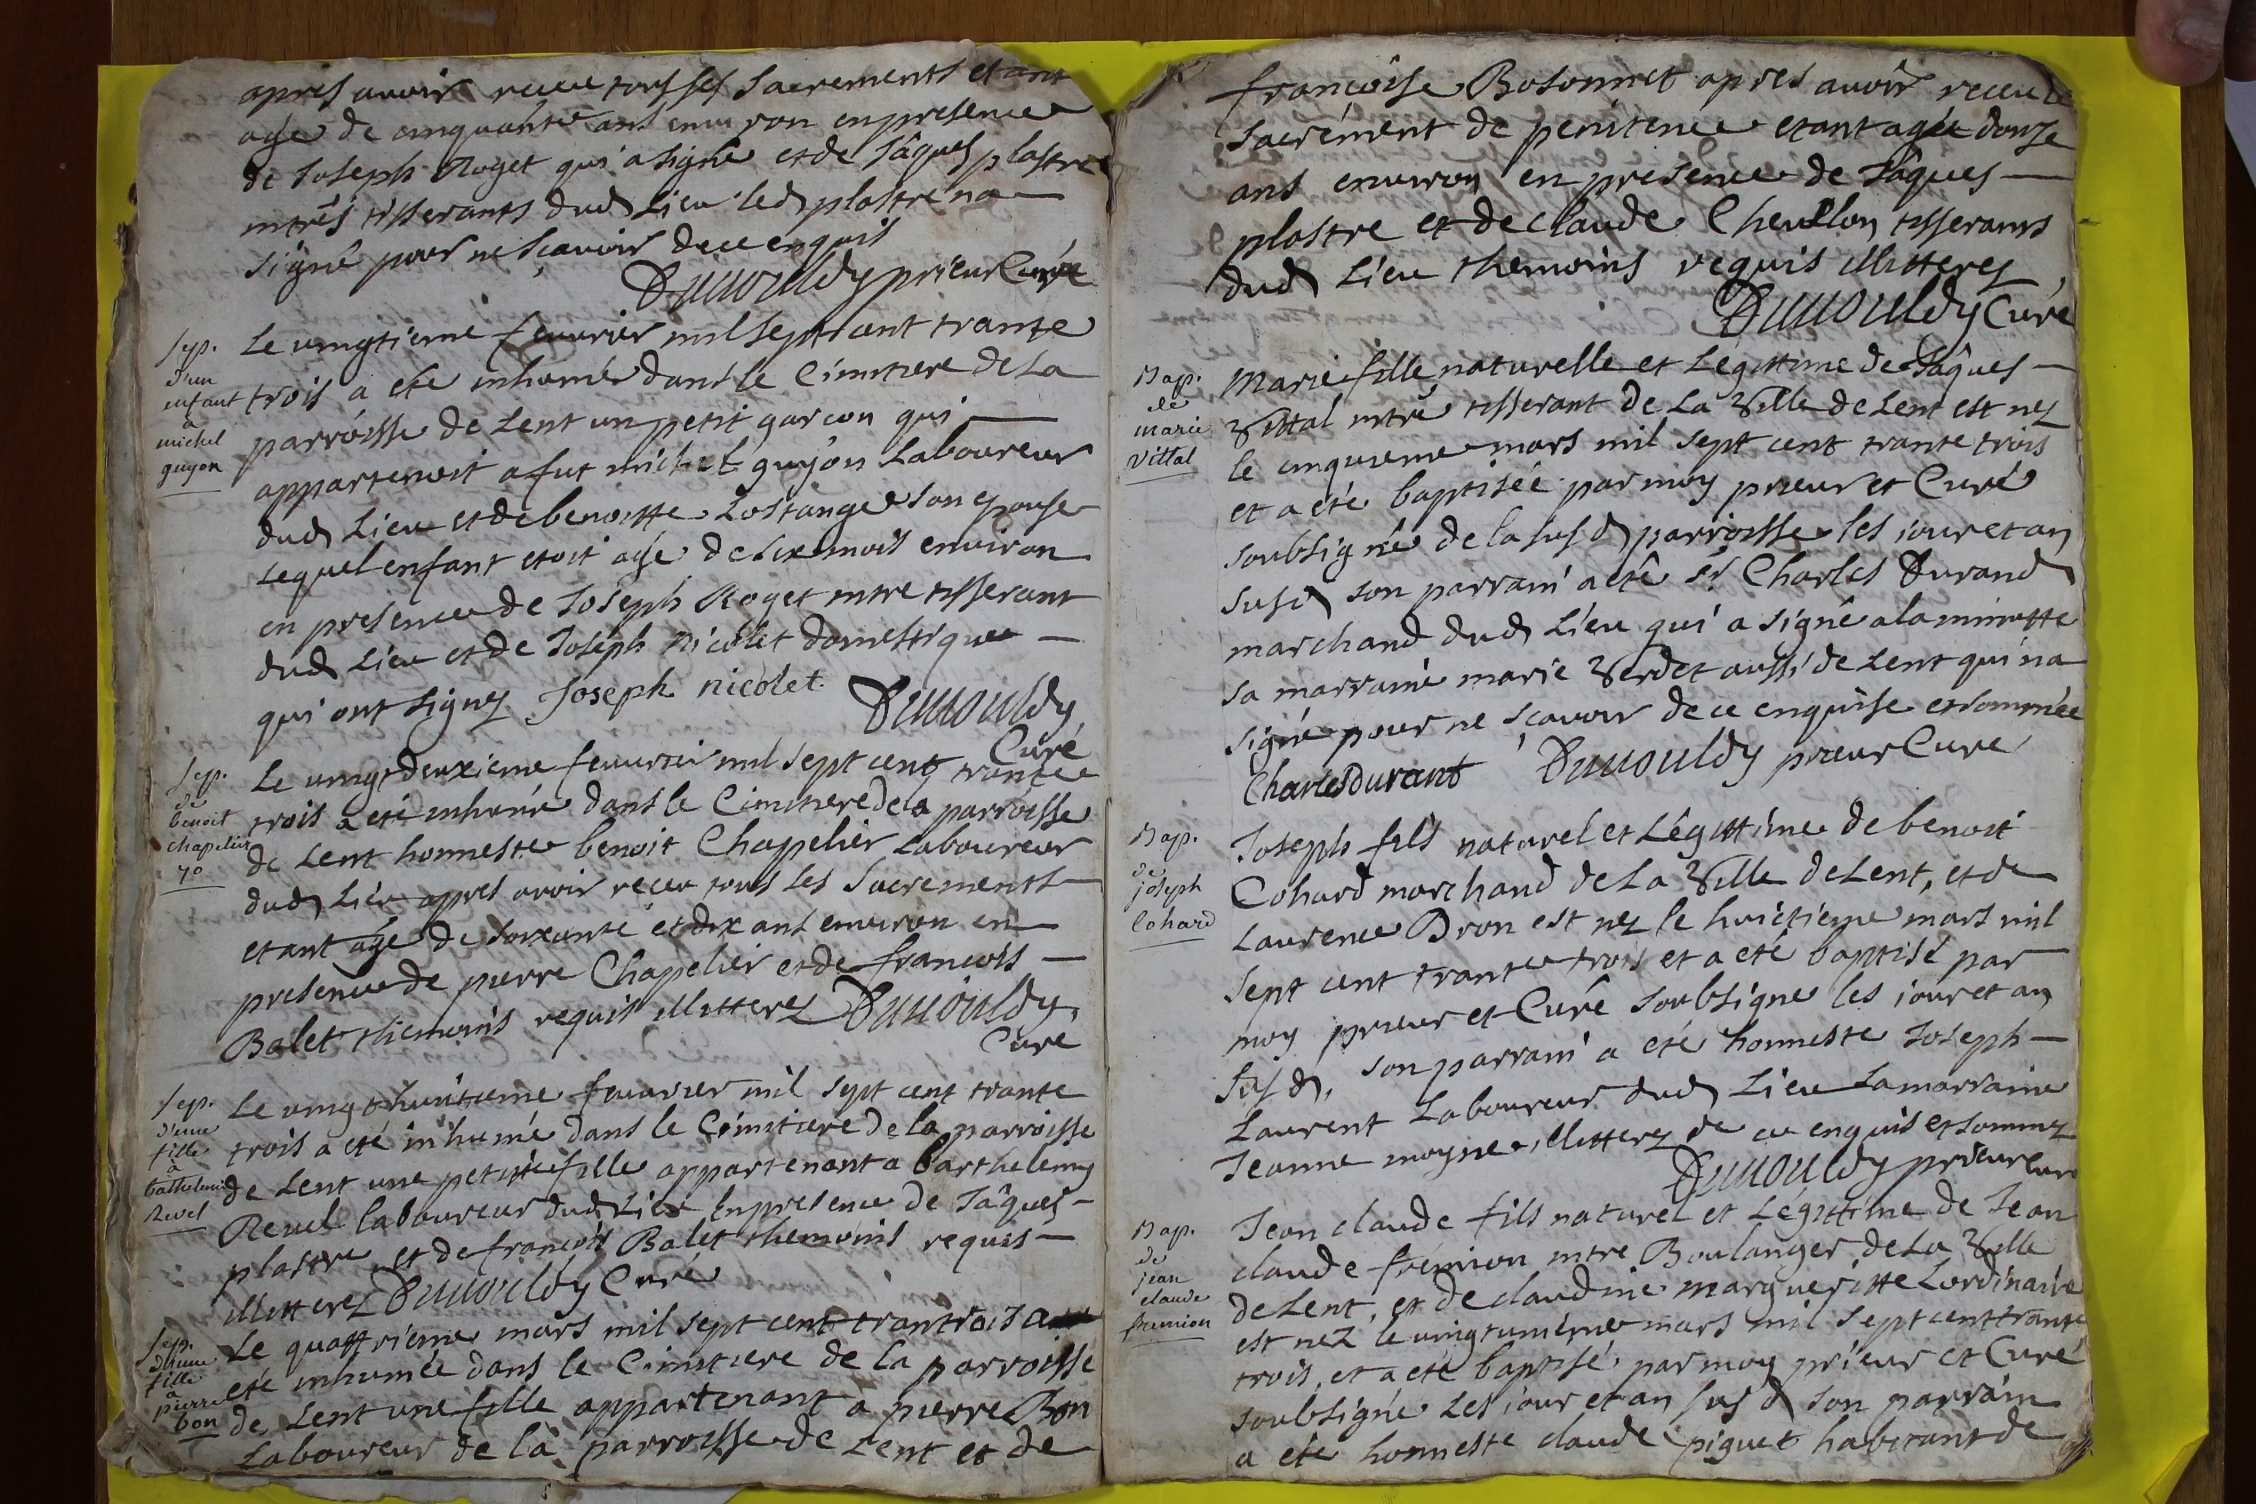 apres avoir receu tous ses Sacrements etant
age de cinquante ans environ en presence
de Joseph Roget qui a signé et de Jâques plastre
mtrês tisserants dud Lieu led plastre na
signé pour ne scavoir de ce enquis
Duvouldy prieur Curé
Sep.
d'un
enfant
a
michel
guyon
Le vingtieme fevrier mil sept cent trante
trois a eté inhumé dans le Cimitiere de La
parroisse de Lent un petit garcon qui
appartenoit a fut michel guyon Laboureur
dud Lieu et de benoitte Lostange son epouse
Lequel enfant etoit age de six mois environ
en presence de Joseph Roget mtre tisserant
dud Lieu et de Joseph Nicolet domestique
qui ont signez Joseph nicolet Duvouldy
Curé
Sep.
de
benoit
chapelier
70
Le vingt deuxieme fevrier mil sept cent trante
trois a eté inhumé dans le Cimitiere de la parroisse
de Lent honneste benoit Chapelier Laboureur
dud Lieu apres avoir receu tous les Sacrements
etant âgé de soixante et dix ans environ en
presence de pierre Chapelier et de francois
Balet themoins requis illitterez Duvouldy
Curé
Sep.
d'une
fille
a
bathelemi
Revel
Le vingt huitieme fevrier mil sept cent trante
trois a eté inhumé dans le Cimitiere de la parroisse
de Lent une petitte fille appartenant a barthelemy
Revel laboureur dud Lieu en presence de Jâques
plastre et de francois Balet themoins requis
illitterez Duvouldy Curé
Sep.
d'une
fille
a
pierre
bon
Le quattrieme mars mil sept cent trantrois a
eté inhumée dans le Cimitiere de la parroisse
de Lent une fille appartenant a pierre Bon
Laboureur de la parroisse de Lent et de
francoise Bosonnet apres avoir receu le
sacrément de penitence etant agée douze
ans environ en presence de Jâques
plastre et de claude Chevillon tisserants
dud Lieu themoins requis illitterez
Duvouldy Curé
Bap.
de
marie
Vittal
Marie fille naturelle et Légittime de Jâques
Vittal mtre tisserant de La Ville de Lent est nez
le cinquieme mars mil sept cent trante trois
et a eté baptisée par moy prieur et Curé
soubsigné de la susd parroisse les jour et an
susd son parrain a eté sr Charles Durand
marchand dud Lieu qui a signé a la minutte
sa marraine marie Verdet aussi de Lent qui na
signé pour ne scavoir de ce enquise et sommée
Charles durant Duvouldy prieur Curé
Bap.
de
joseph
Cohard
Joseph fils naturel et Légittime de benoit
Cohard marchand de La Ville de Lent, et de
Laurence Bron est nez le huictieme mars mil
sept cent trante trois et a eté baptisé par
moy prieur et Curé soubsigné les jour et an
susd, son parrain a eté honneste Joseph
Laurent Laboureur dud Lieu La marraine
Jeanne moyne illitterez de ce enquis et sommez
Duvouldy prieur Curé
Bap.
de
jean
claude
fremion
Jean claude fils naturel et Légittime de Jean
claude fremion mtre Boulanger de La Ville
de Lent, et de claudine margueritte Lordinaire
est nez le vingtunième mars mil sept cent trante
trois, et a eté baptisé par moy prieur et Curé
soubsigné Les jour et an susd son parrain
a eté honneste claude piguet habitant de